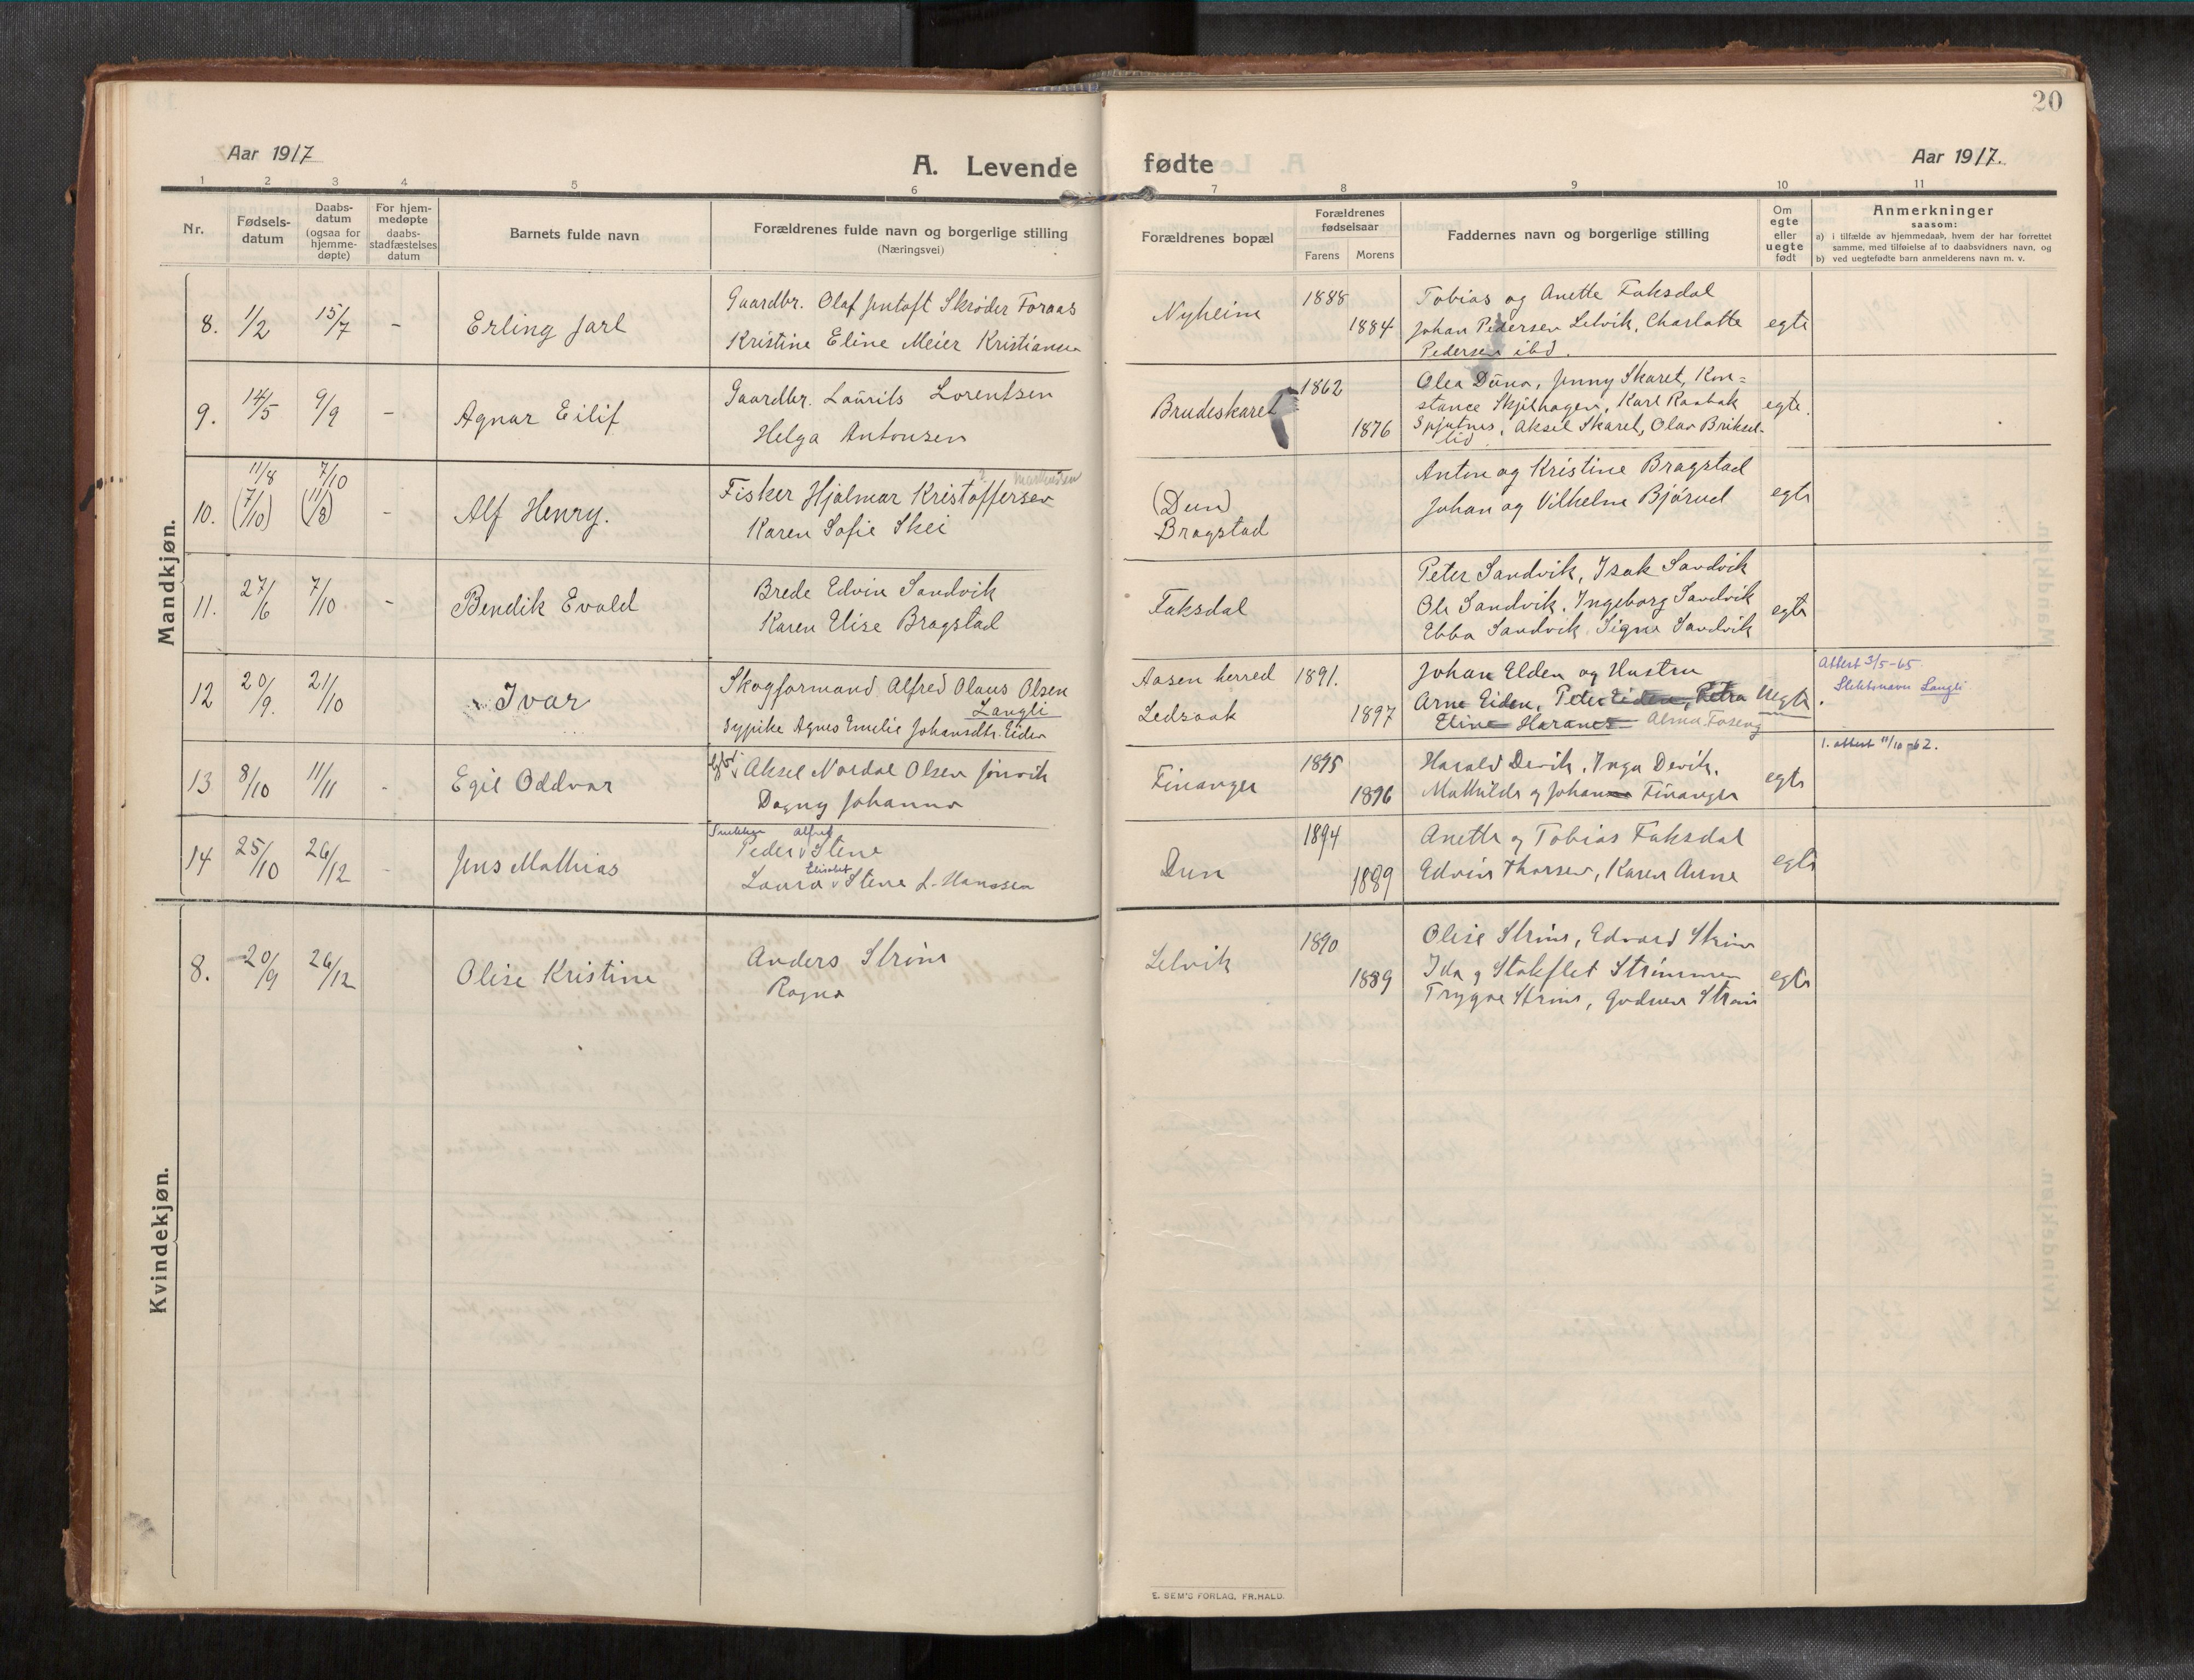 20
Aar 1917
A. Levende
fødte
Aar 1917.
1 2 3 4 5 6 7 8 9 10 11
Nr.
Fødsels-
datum
Daabs-
datum
(ogsaa for
hjemme-
døpte)
For hjem-
medøpte
daabs-
stadfæstelses
datum
Barnets fulde navn
Forældrenes fulde navn og borgerlige stilling
(Næringsvei)
Forældrenes bopæl
Forældrenes
fødselsaar
Farens Morens
Faddernes navn og borgerlige stilling
Om
egte
eller
uegte
født
Anmerkninger
saasom:
a) i tilfælde av hjemmedaab, hvem der har forrettet
samme, med tilføielse af to daabsvidners navn, og
b) ved uegtefødte barn anmelderens navn m. v.
Mandkjøn.
8. 1/2 15/7 - Erling Jarl
Gaardbr. Olaf Jentoft Skrøder Foraas
Kristine Eline Meier Kristiansen
Nyheim
1888
1884
Tobias og Anette Faksdal
Johan Pedersen Lelvik, Charlotte
Pedersen ibd.
egte
9. 14/5 9/9 - Agnar Eilif
Gaardbr. Laurits Lorentsen
Helga Antonsen
Brudeskaret
1862
1876
Olea Duna, Jenny Skaret, Kon=
stance Skjelhagen, Karl Raabak
Spjutnes, Aksel Skaret, Olav Briksel-
lid
egte.
10. 11/8 (7/10) 7/10 (11/8) - Alf Henry.
Fisker Hjalmar Kristoffersen
Karen Sofie Skei
(Dun)
Bragstad
Anton og Kristine Bragstad
Johan og Vilhelm Bjørud
egte
11. 27/6 7/10 - Bendik Evald
Brede Edvin Sandvik
Karen Elise Bragstad
Faksdal
Peter Sandvik, Isak Sandvik
Ole Sandvik, Ingeborg Sandvik
Ebba Sandvik, Signe Sandvik
egte
12 20/9. 21/10 Ivar
Skogformand Alfred Olaus Olsen
Langli
Sypike Agnes Emelie Johansdtr. Eiden
Aasen herred
Ledsaak
1891.
1897
Johan Elden og Hustru
Arne Eiden, Peter Eiden, Petra
Eline Haranes Alma Foseng
Uegte
Attest 3/5-65
Slektsnavn Langli
13 8/10 11/11 - Egil Oddvar
Aksel Nordal Olsen Jønvik
Dagny Johanna
Finanger
1895
1896
Harald Devik, Inga Devik,
Mathilde og Johan Finanger
egte
1. attest 11/10-62.
14 25/10 26/12 - Jens Mathias
Alfred
Peder Stene
Elisabet
Laura Stene f. Hanssen
Dun
1894
1889
Anette og Tobias Faksdal
Edvin Thorsen, Karen Aune
egte
Kvindekjøn.
8. 20/9 26/12 - Olise Kristine
Anders Strøm
Ragna
Lelvik
1890
1889
Olise Strøm, Edvard Strøm
Ida og Stokflet Strømmen
Trygve Strøm, Gudrun Strøm
egte
E. SEM'S FORLAG, FR.HALD.